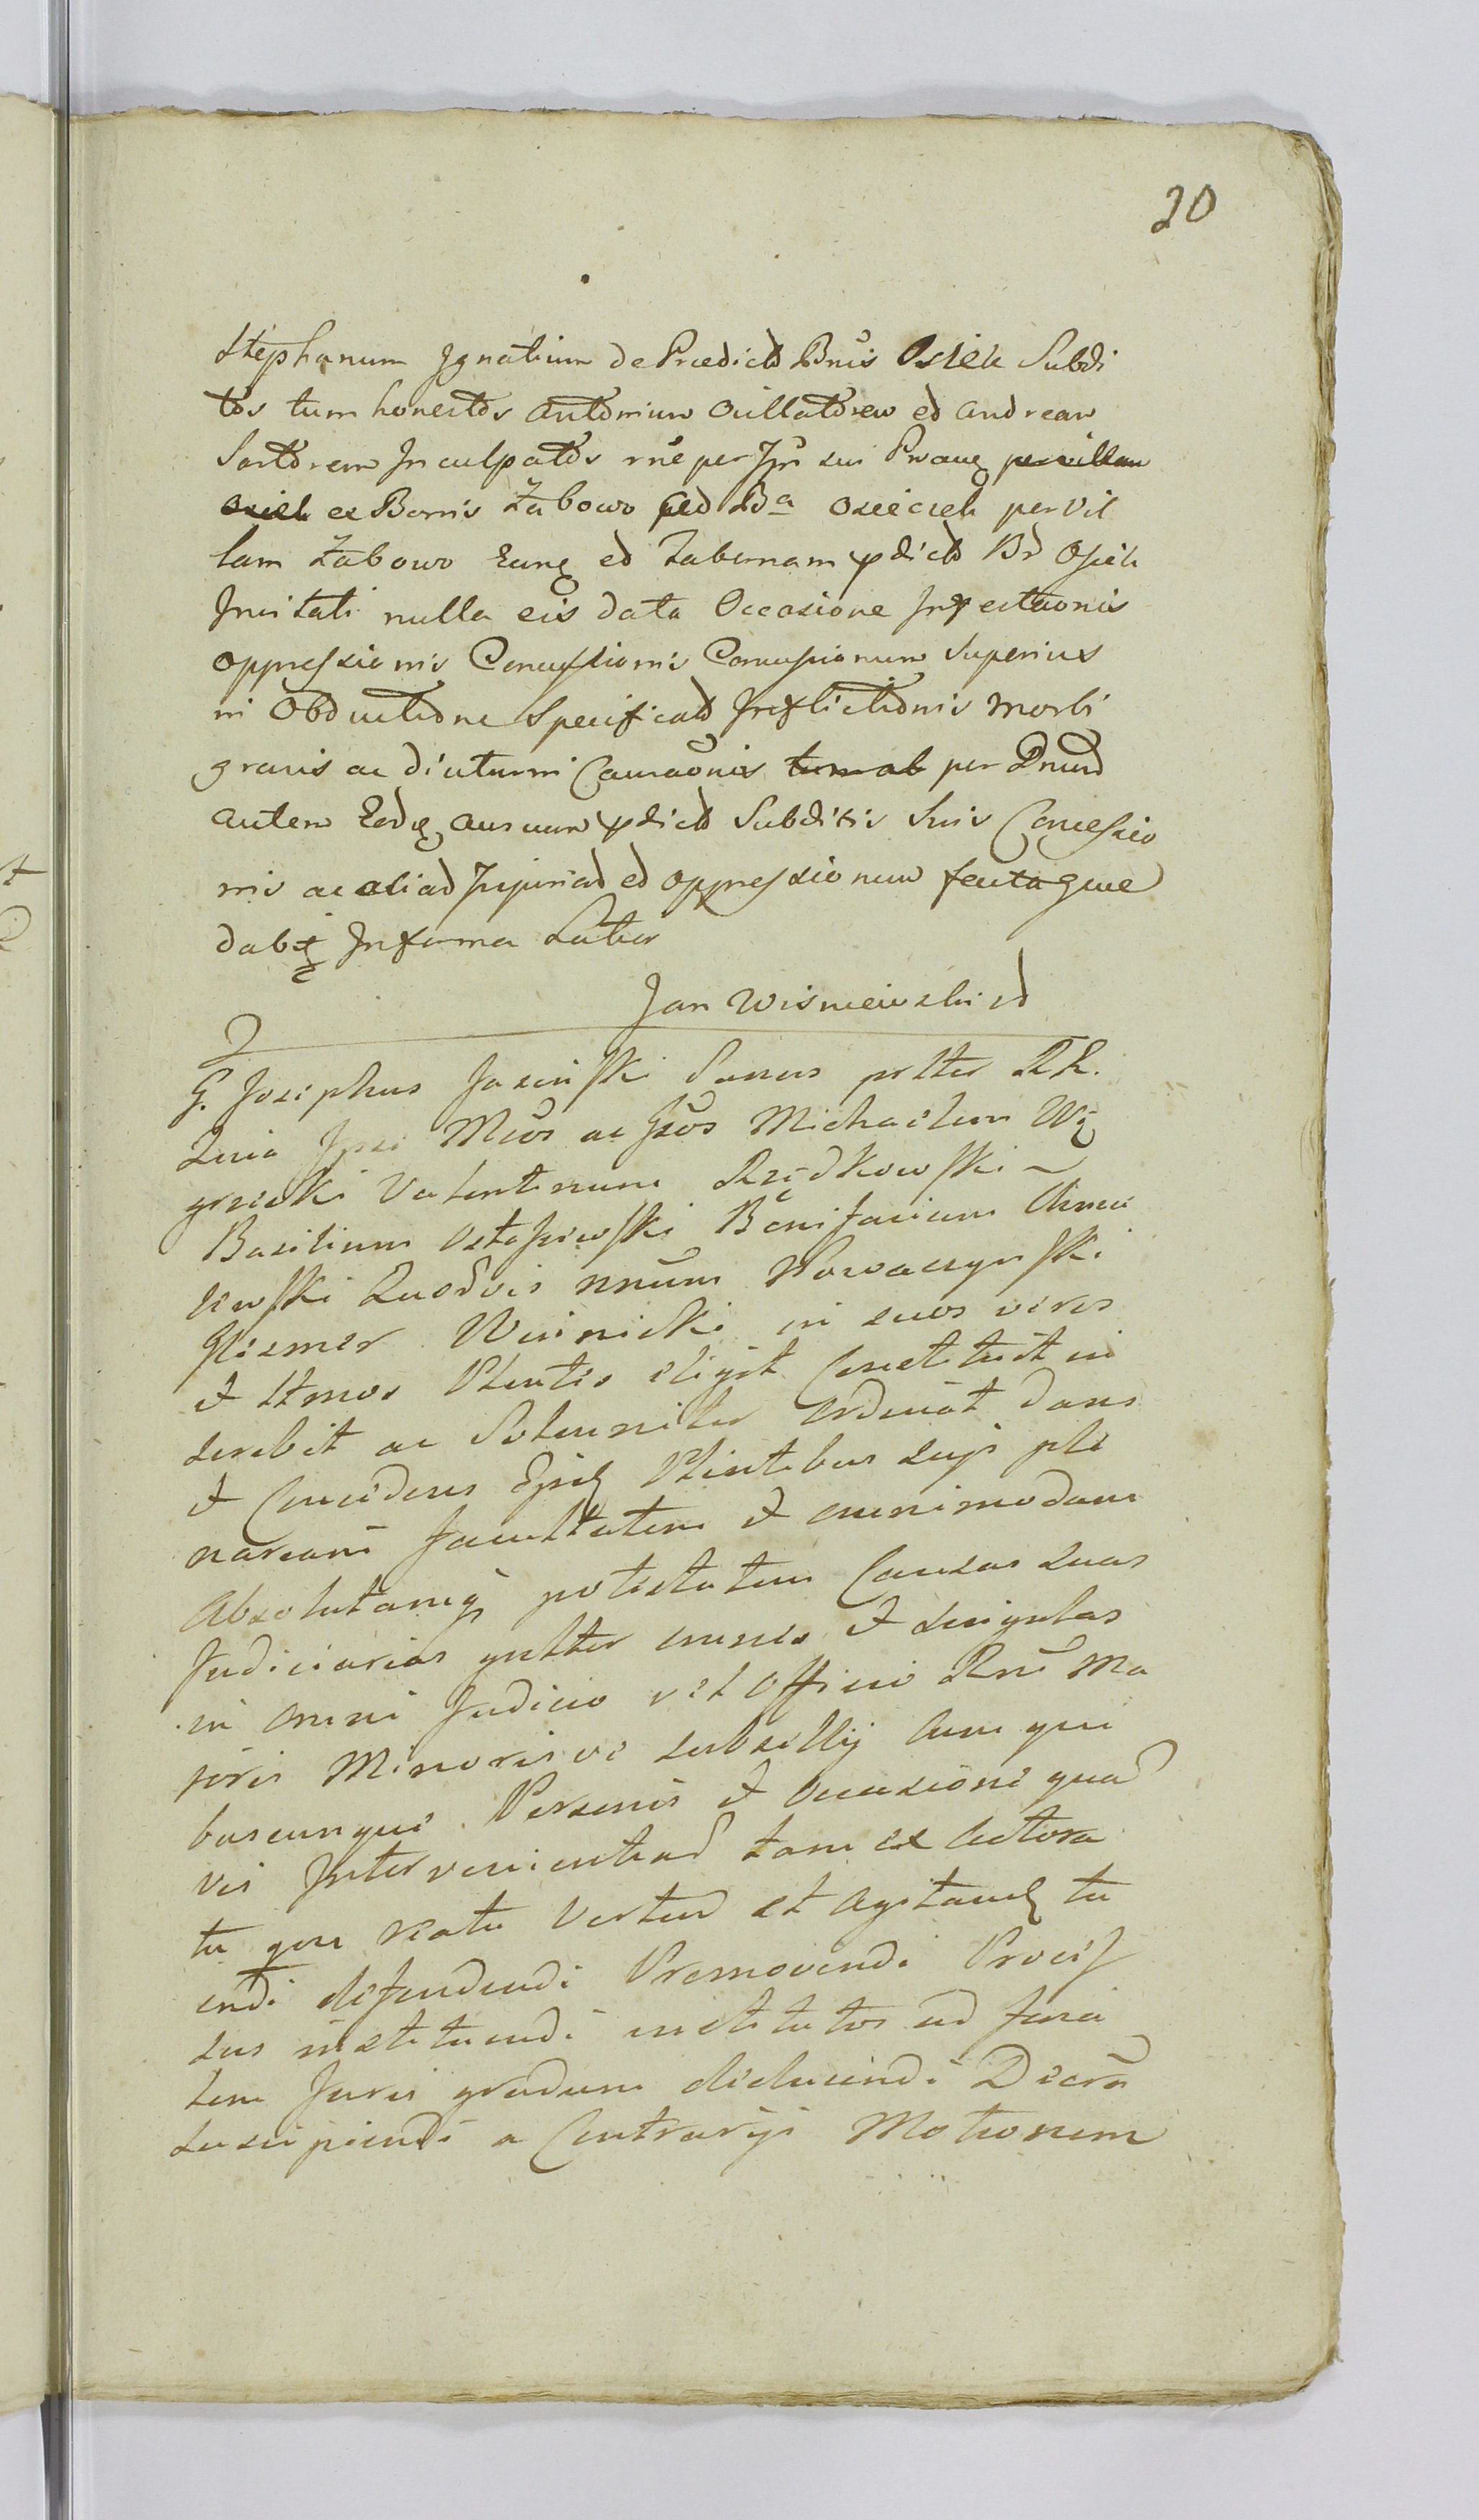 20
Stephanum Ignatium de Prædictd Bnis Osiek Subdi
tos tum honestos Antonium Avillatorem ed Andream
Sartorem Inculpatos rne per Ipm sui per villam
Osiek ex Bonis Żabowo ad Ba Osieczek per Vil
lam Żabowo Eanq ed Tabernam pdictd Bd Osiek
Invitati nulla eis data Occasione Infestaonis
oppressionis Concussionis Concussionum Superius
in Obductione Specificatd Inflictionis Morbi
gravis ac diuturni Causaonis tum ab per
autem Eodq ausuum pdictd Subditis Suis Concussio
nis ac aliad Injuriad ed oppressionum
dabq In forma Latior
Jan Wisniewski
G. Josephus Jasinski Sanus prtter RR.
Mcos ac Gsos Michaelem Wę
grzecki Valentinum Rzędkowski
Basilium Ostaszewski Bonifacium Chmie
lewski Quodvis nnum Nowaczynski
Winnicki in suos veros
et ltmos Plentes eligit Constituit in
scribit ac Solenniter Ordinat dans
et Concedens Ipsiq Plentibus suis ple
nariam facultatem et omnimodam
Absolutamq potestatem Causas suas
Judiciarias gnltter omnes et singulas
in Omni Judicio vel Officio Rni Ma
joris Minorisve subsellij Cum qui
buscunque Personis et Occasione qua
vis Intervenientiad tam ex Actora
tu qua Reatu Vertend et Agitandq tu
endi defendendi Promovendi Proces
sus instituendi institutos ad fina
lem Juris gradum deducendi Decra
suscipiendi a Contrarijs Motionem